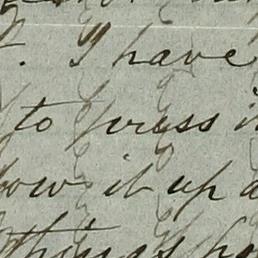 . I have
to press i
ow it up a
things ho